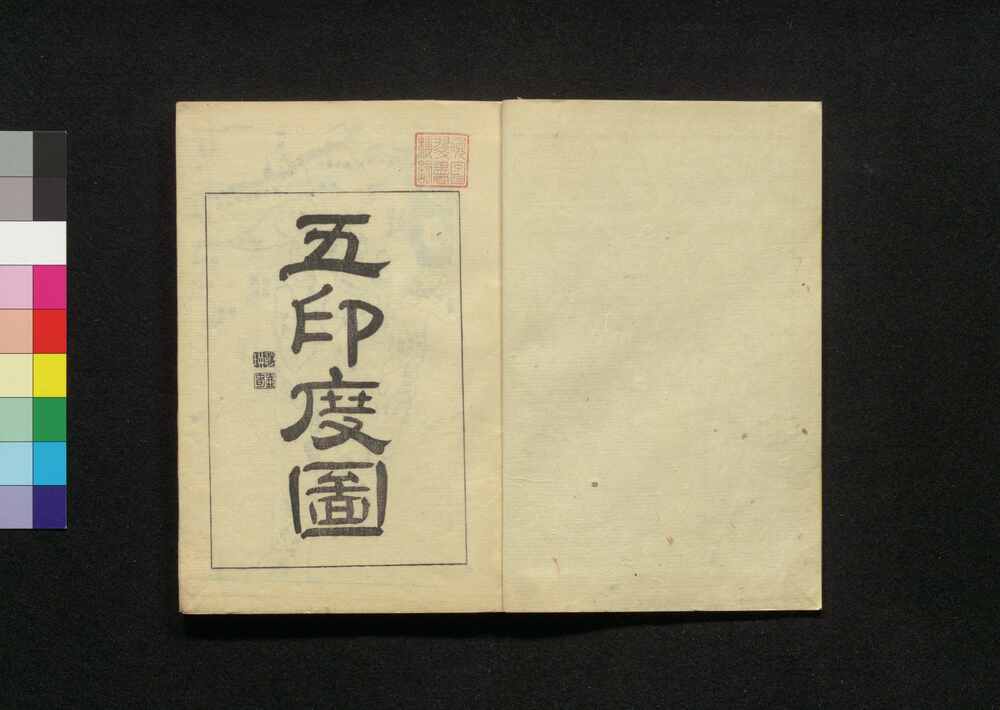 五印度圖